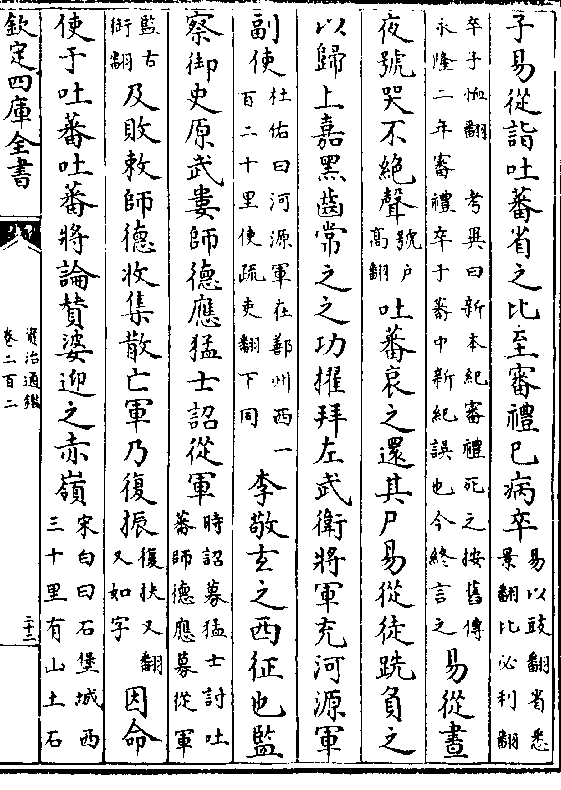 子易從詣吐蕃省之比至審禮已病卒易以豉翻省悉景翻比必利翻
卒子恤翻　考異曰新本紀審禮死之按舊傳永隆二年審禮卒于蕃中新紀誤也今終言之易從晝
夜號哭不絶聲號户高翻吐蕃哀之還其尸易從徒跣負之
以歸上嘉黑齒常之之功擢拜左武衛將軍充河源軍
副使杜佑曰河源軍在鄯州西一百二十里使疏吏翻下同李敬玄之西征也監
察御史原武婁師德應猛士詔從軍時詔募猛士討吐蕃師德應募從軍
監古銜翻及敗敕師德收集散亡軍乃復振復扶又翻又如字因命
使于吐蕃吐蕃將論贊婆迎之赤嶺宋白曰石堡城西三十里有山土石
欽定四庫全書
資治通鑑
卷二百二
二十二